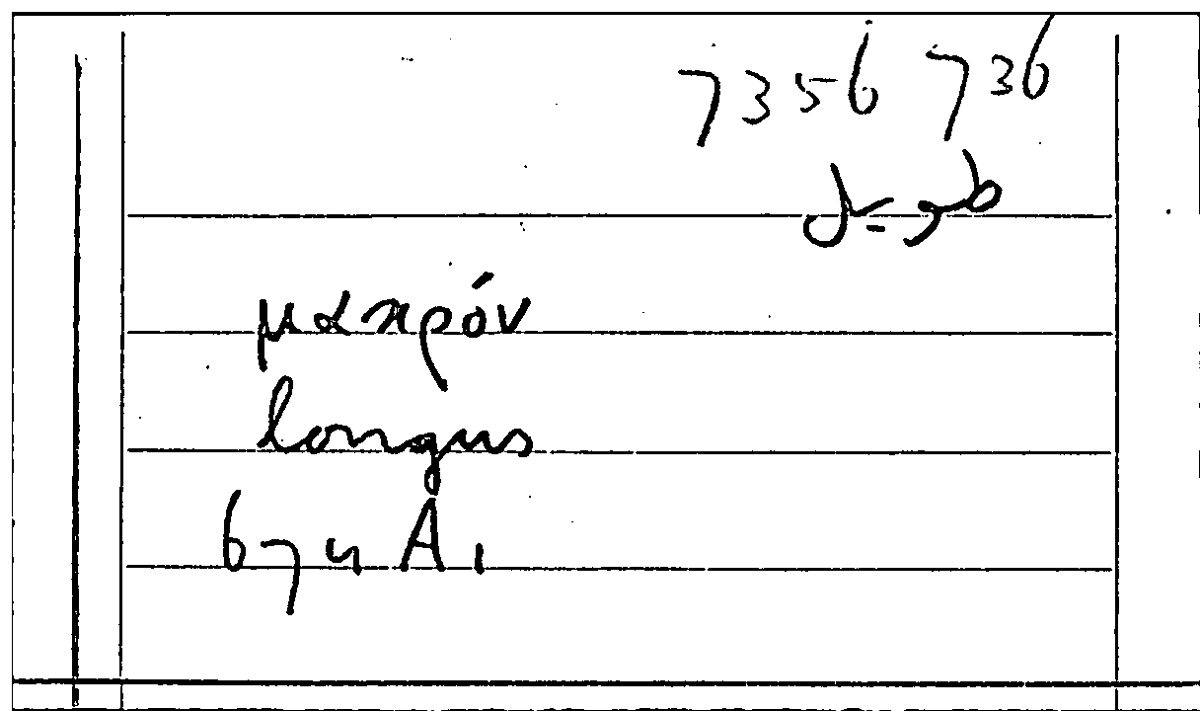 7356 736
μακρόν
longus
674 A1